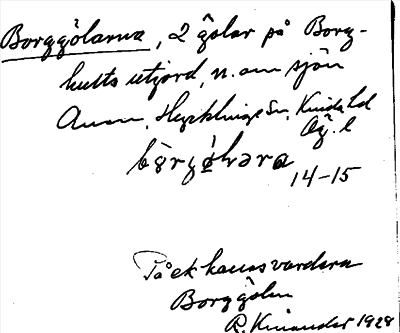 Borggölarna, 2 gölar på Borg-
hults utjord, n. om sjön
Ånon, Hycklinge Sn, Kinda hd
Ög. l
14-15
Tåek kallas vardera
Borggölen
R. Kinander 1928